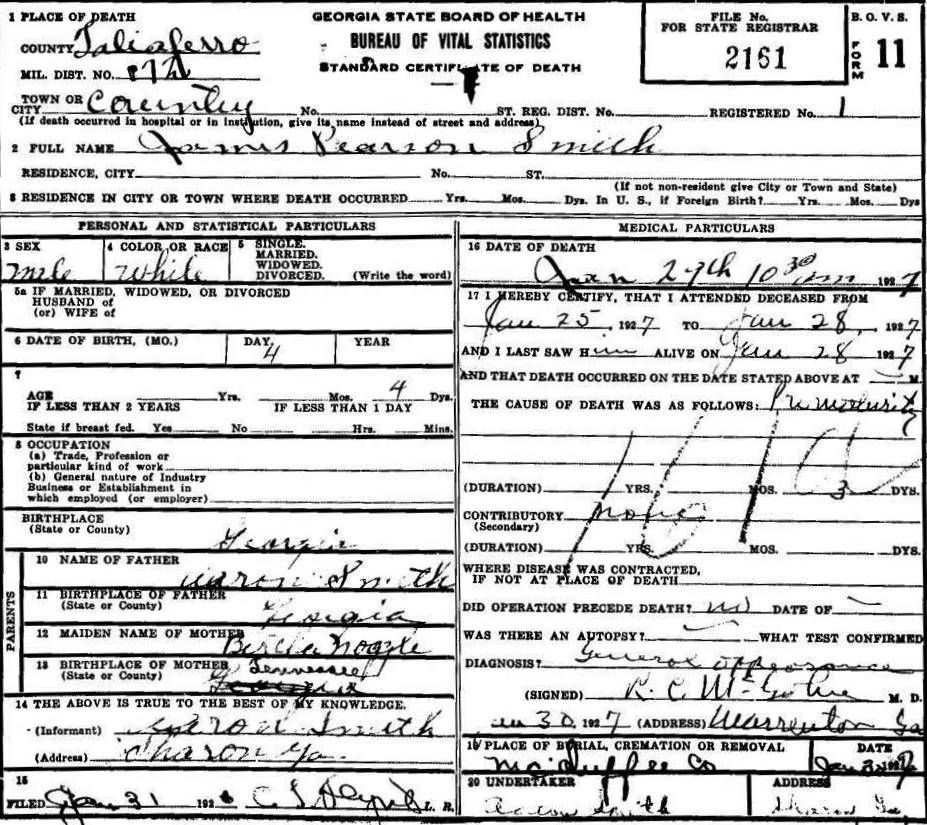 GEORGIA STATE BOARD OF HEALTH
BUREAU OF VITAL STATISTICS
STANDARD CERTIFICATE OF DEATH
FILE No.
FOR STATE REGISTRAR
2161
B. O. V. S.
FORM 11
1 PLACE OF DEATH
COUNTY Taliaferro
MIL. DIST. NO.
TOWN OR
CITY Country No. ST. REG. DIST. NO. REGISTERED No. 1
(If death occurred in hospital or in institution, give its name instead of street and address)
2 FULL NAME James Pearson Smith
RESIDENCE, CITY No. ST.
(If not non-resident give City or Town and State)
3 RESIDENCE IN CITY OR TOWN WHERE DEATH OCCURRED Yrs. Mos. Dys. In U. S., if Foreign Birth? Yrs. Mos. Dys
PERSONAL AND STATISTICAL PARTICULARS
3 SEX
male
4 COLOR OR RACE
White
5 SINGLE.
MARRIED.
WIDOWED.
DIVORCED. (Write the word)
5a IF MARRIED, WIDOWED, OR DIVORCED
HUSBAND of
(or) WIFE of
6 DATE OF BIRTH, (MO.) DAY, YEAR
4
7
AGE Yrs. Mos. 4 Dys.
IF LESS THAN 2 YEARS IF LESS THAN 1 DAY
State if breast fed. Yes No Hrs. Mins.
8 OCCUPATION
(a) Trade, Profession or
particular kind of work
(b) General nature of Industry
Business or Establishment in
which employed (or employer)
BIRTHPLACE
(State or County) Georgia
PARENTS
10 NAME OF FATHER
Aaron Smith
11 BIRTHPLACE OF FATHER
(State or County) Georgia
12 MAIDEN NAME OF MOTHER
13 BIRTHPLACE OF MOTHER Tennessee
(State or County) Georgia
14 THE ABOVE IS TRUE TO THE BEST OF MY KNOWLEDGE.
(Informant) Aaron Smith
(Address) Sharon Ga
15
FILED Jan 31 192 L. R.
MEDICAL PARTICULARS
16 DATE OF DEATH
Jan 29th 10 30 am 1927
17 I HEREBY CERTIFY, THAT I ATTENDED DECEASED FROM
Jan 25, 1927 TO Jan 28, 1927
AND I LAST SAW Him ALIVE ON Jan 28 1927
AND THAT DEATH OCCURRED ON THE DATE STATED ABOVE AT M.
THE CAUSE OF DEATH WAS AS FOLLOWS: Prematurity
161a
(DURATION) YRS. MOS. 3 DYS.
CONTRIBUTORY none
(Secondary)
(DURATION) YRS. MOS. DYS.
WHERE DISEASE WAS CONTRACTED,
IF NOT AT PLACE OF DEATH
DID OPERATION PRECEDE DEATH? no DATE OF
WAS THERE AN AUTOPSY? WHAT TEST CONFIRMED
DIAGNOSIS? General appearance
(SIGNED) R. C. M. D.
Jan 30 1927 (ADDRESS) Warrenton Ga
19 PLACE OF BURIAL, CREMATION OR REMOVAL DATE
McDuffee Co Jan
20 UNDERTAKER ADDRESS
Aaron Smith Sharon Ga